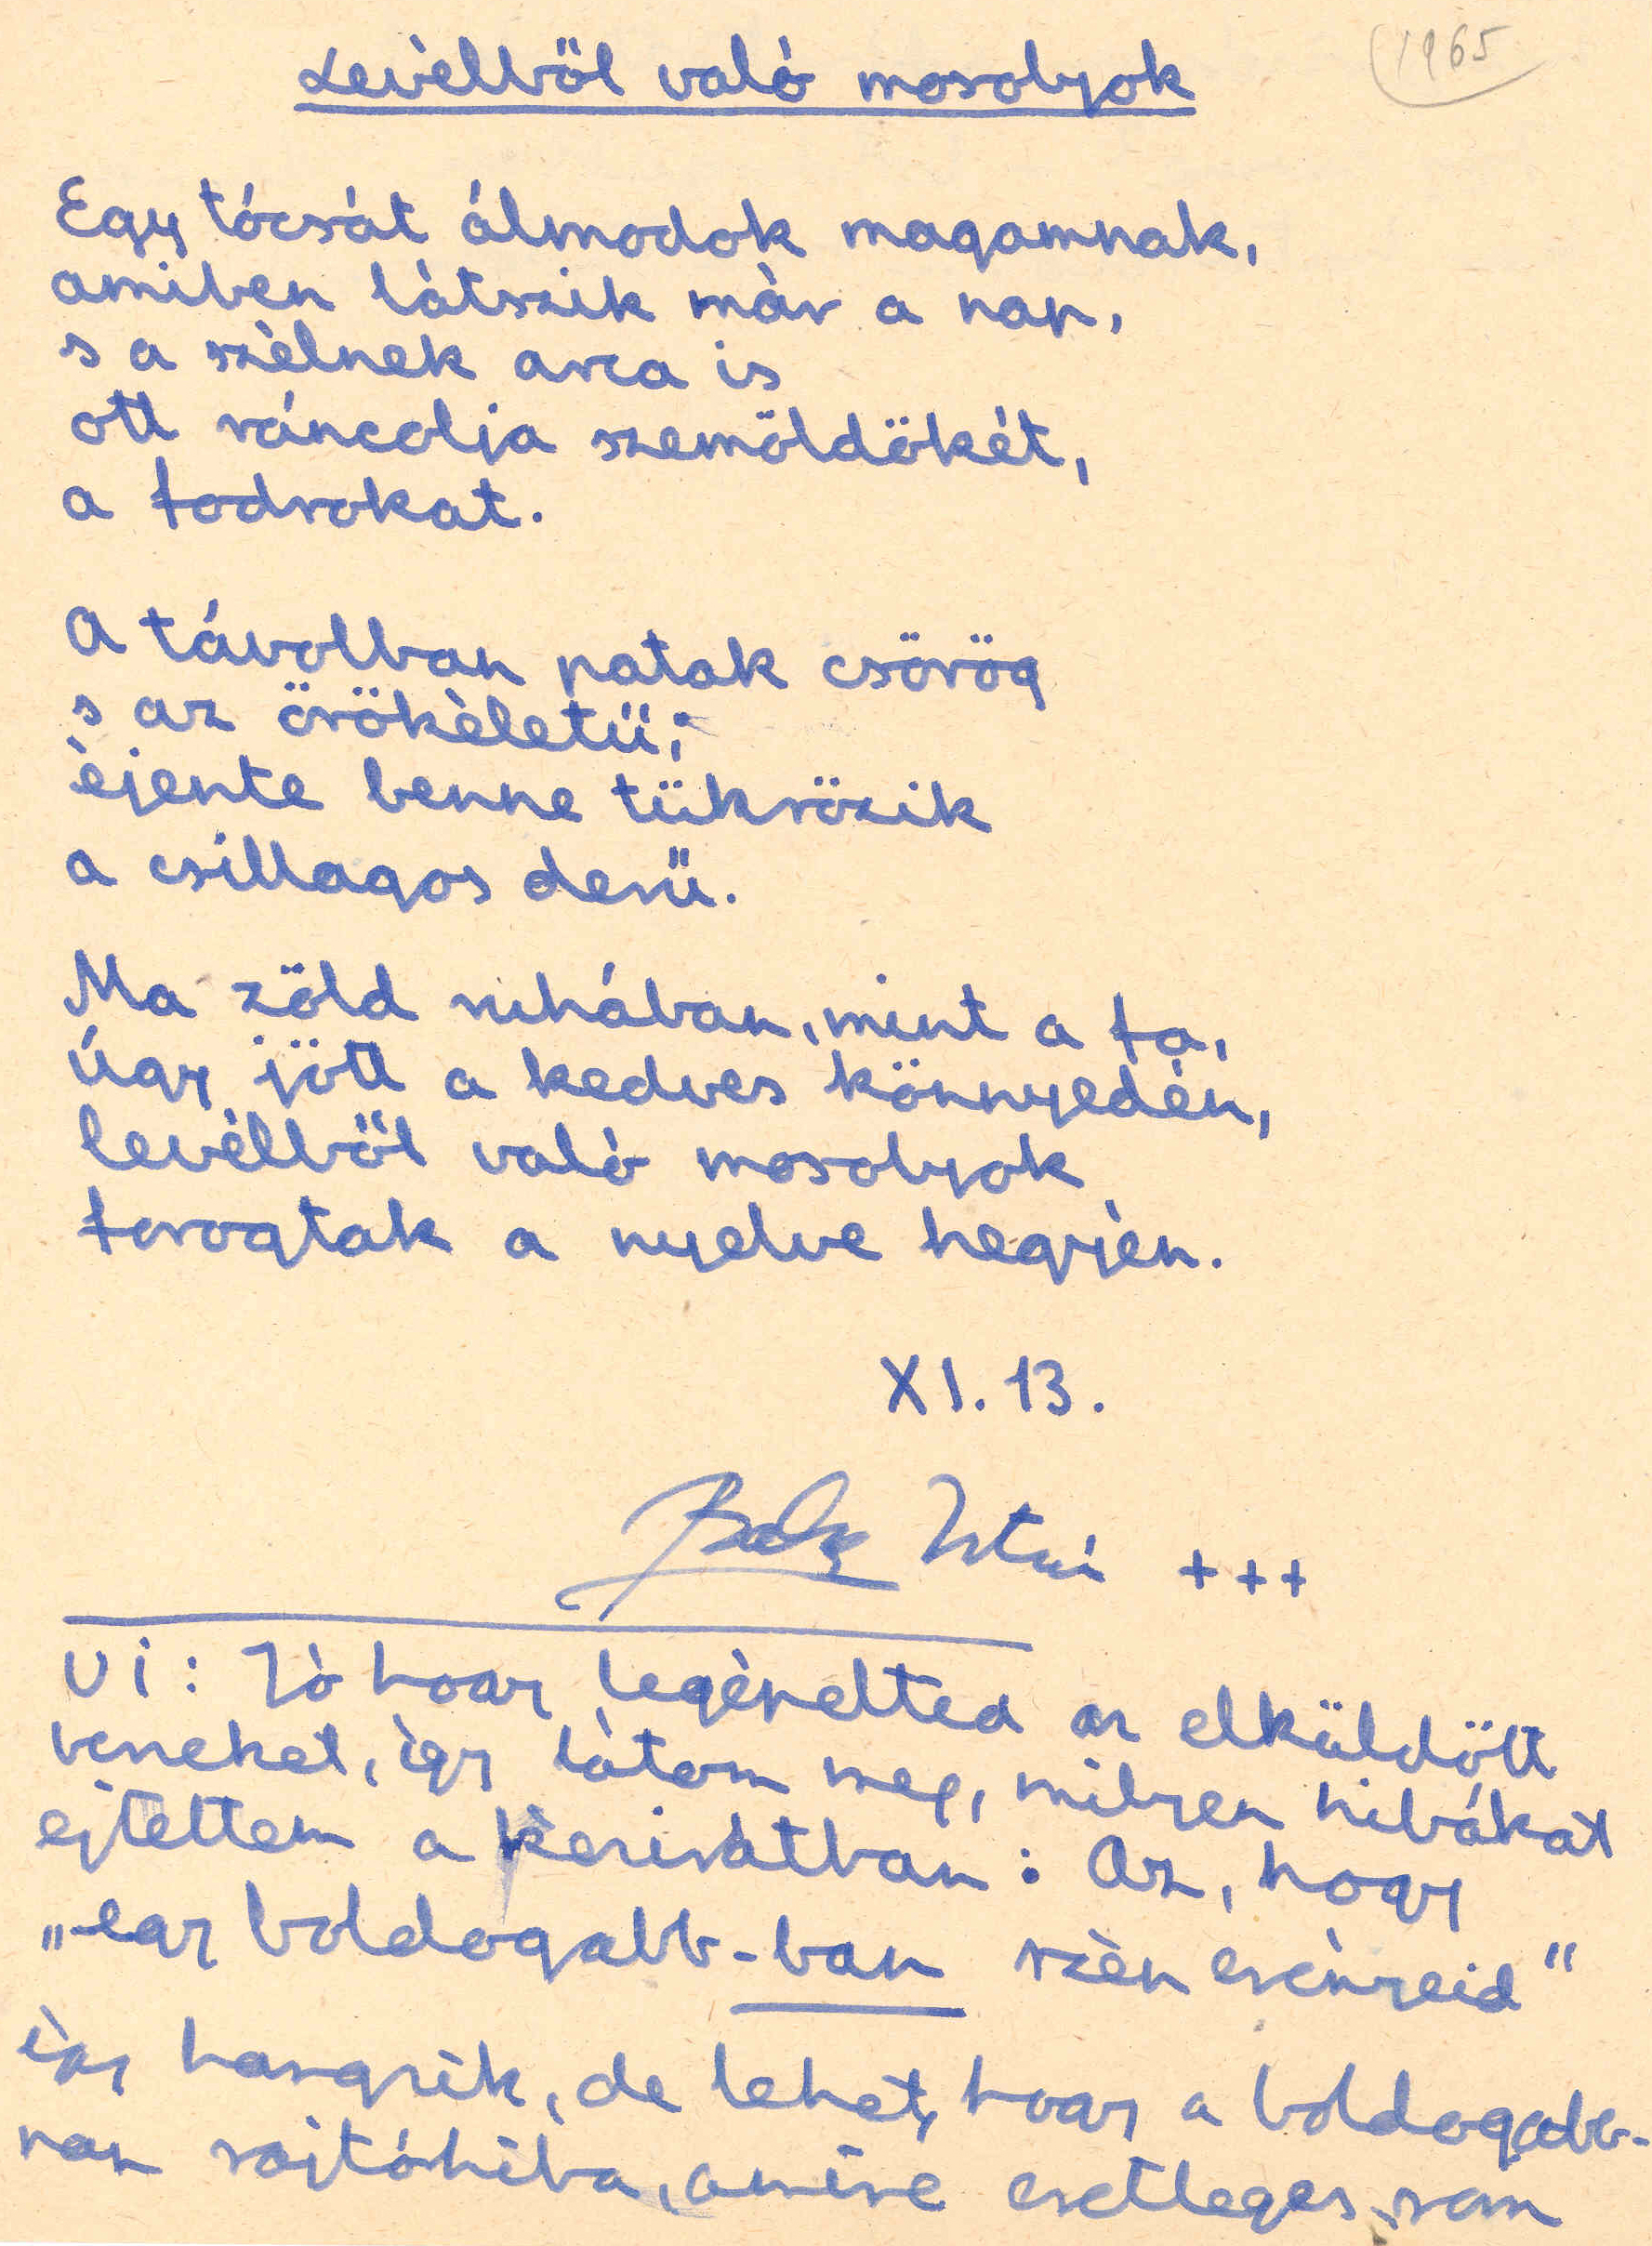 Levélből való mosolyok
(1965
Egy tócsát álmodok magamnak,
amiben látszik már a nap,
s a szélnek arca is
ott ráncolja szemöldökét,
a fodrokat.
A távolban patak csörög
s az örökéletü;
éjente benne tükrözik
a csillagos derü.
Ma zöld ruhában, mint a fa,
úgy jött a kedves könnyedén,
levélből való mosolyok
forogtak a nyelve hegyén.
XI. 13.
István +++
Ui: Jó hogy legépelted az elküldött
verseket, így látom meg, milyen hibákat
ejtettem a kéziratban: Az, hogy
„egy boldogabb-ban szén esényeid"
így hangzik, de lehet, hogy a boldogabb-
ban sajtóhiba, amire esetleges